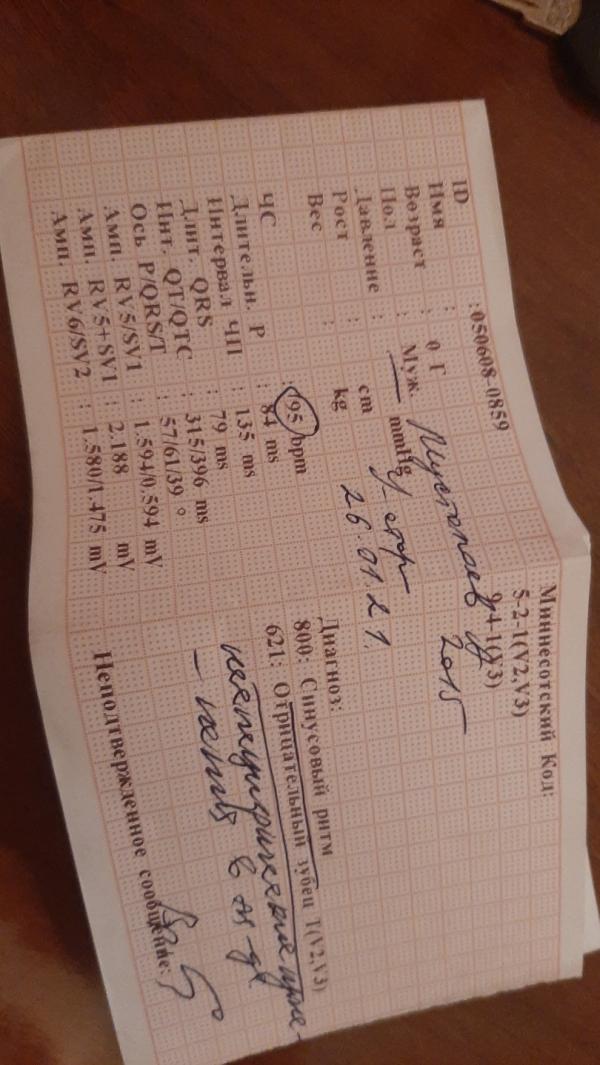 ID :050608-0859
Имя :
Возраст : 0 Г
Пол : Муж.
Давление : mmHg
Рост : cm
Вес : kg
2015
26.01.21.
ЧС : 95 bpm
Длительн. P : 84 ms
Интервал ЧП : 135 ms
Длит. QRS : 79 ms
Инт. QT/QTC : 315/396 ms
Ось P/QRS/T : 57/61/39 °
Амп. RV5/SV1 : 1.594/0.594 mV
Амп. RV5+SV1 : 2.188 mV
Амп. RV6/SV2 : 1.580/1.475 mV
Миннесотский Код:
5-2-1(V2,V3)
9-4-1(V3)
Диагноз:
800: Синусовый ритм
621: Отрицательный зубец T(V2,V3)
Неподтвержденное сообщение: